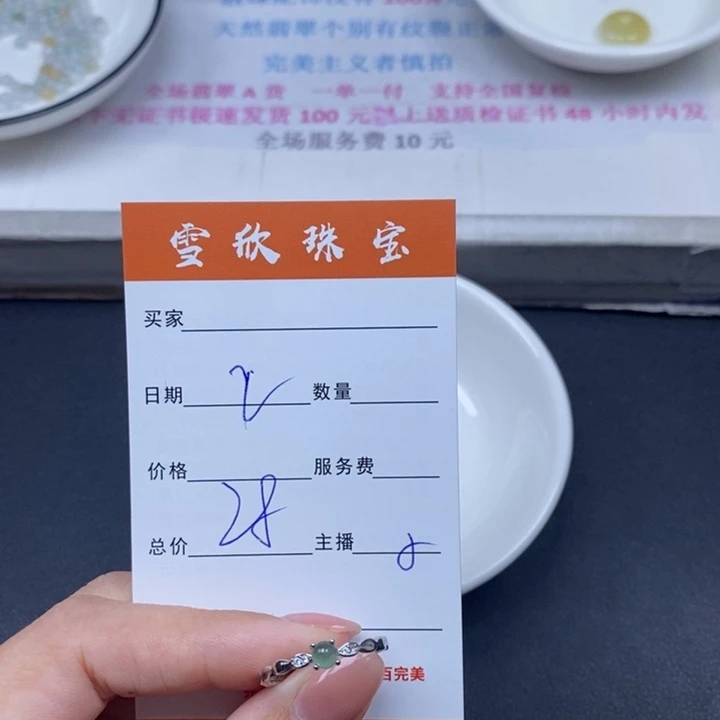 天然翡翠个别有纹裂正常
完美主义者慎拍
全场翡翠 A 货 一单一付 支持全国复检
证书极速发货 100 元以上送质检证书 48 小时内发
全场服务费 10 元
雪欣珠宝
买家
日期 数量
价格 服务费
28
总价 主播
百完美